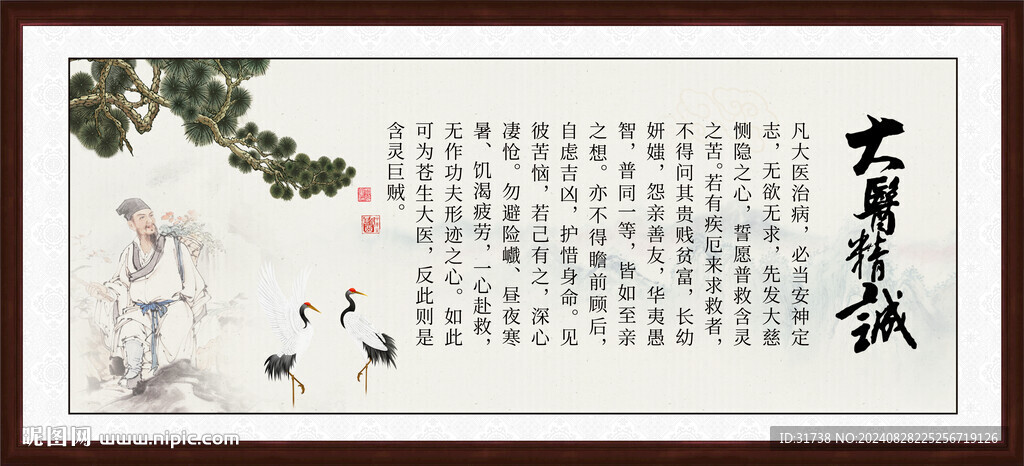 大醫精誠
凡大医治病，必当安神定
志，无欲无求，先发大慈
恻隐之心，誓愿普救含灵
之苦。若有疾厄来求救者，
不得问其贵贱贫富，长幼
妍媸，怨亲善友，华夷愚
智，普同一等，皆如至亲
之想。亦不得瞻前顾后，
自虑吉凶，护惜身命。见
彼苦恼，若己有之，深心
凄怆。勿避险巇、昼夜寒
暑、饥渴疲劳，一心赴救，
无作功夫形迹之心。如此
可为苍生大医，反此则是
含灵巨贼。
昵图网 www.nipic.com
ID:31738 NO:20240828225256719126